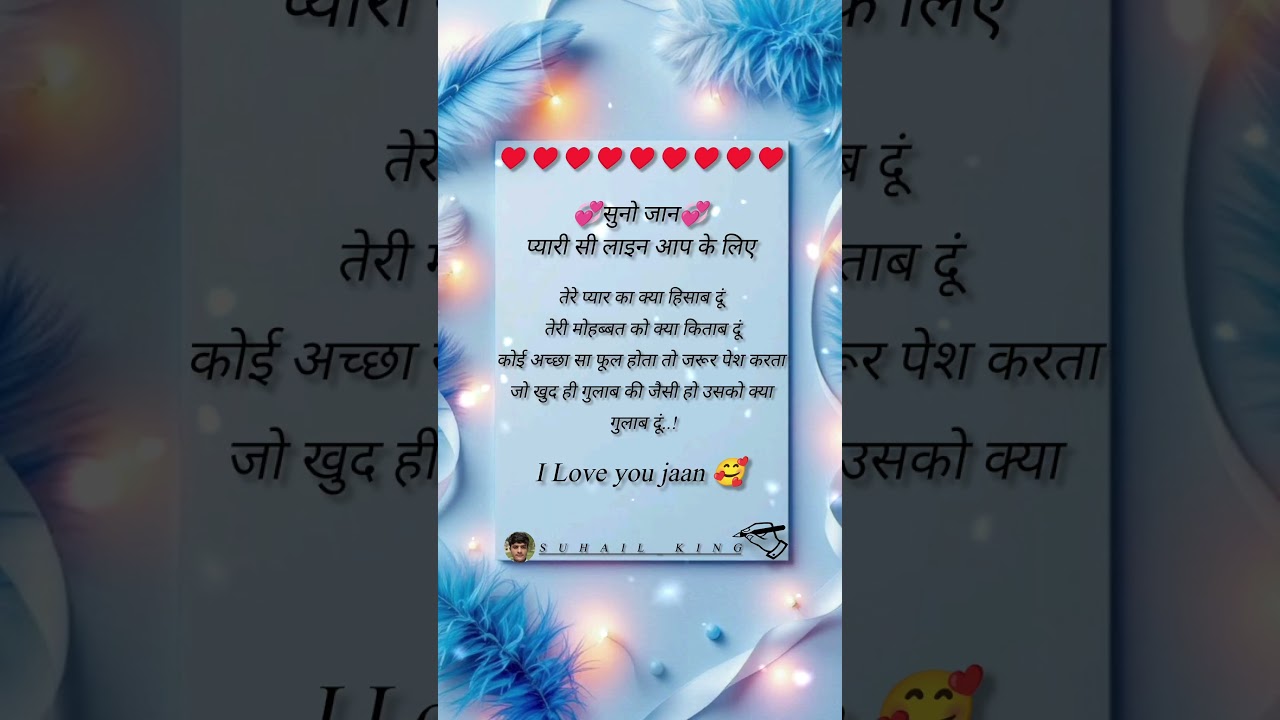 ❤️❤️❤️❤️❤️❤️❤️❤️❤️
💞सुनो जान💞
प्यारी सी लाइन आप के लिए
तेरे प्यार का क्या हिसाब दूं
तेरी मोहब्बत को क्या किताब दूं
कोई अच्छा सा फूल होता तो जरूर पेश करता
जो खुद ही गुलाब की जैसी हो उसको क्या
गुलाब दूं..!
I Love you jaan 🥰
SUHAIL_KING